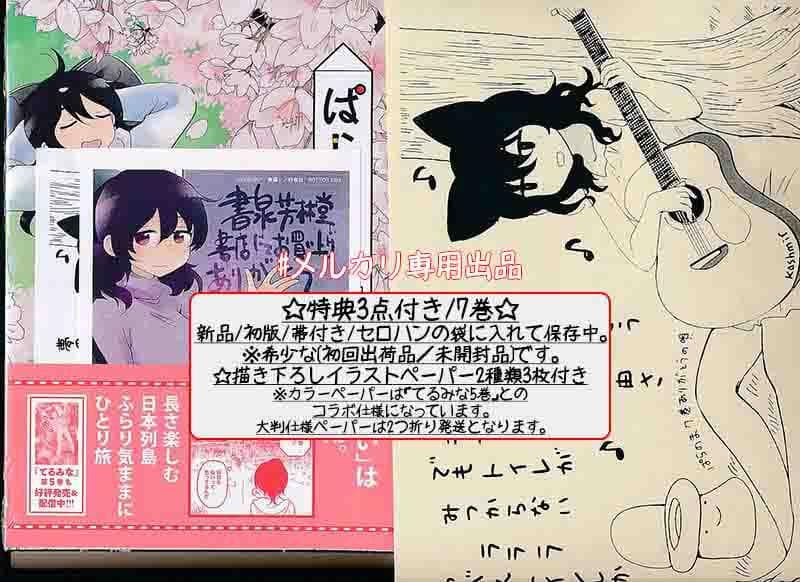 ぱら
書泉芳林堂
書店にてお買上げ
ありが
#メルカリ専用出品
☆特典3点付き/7巻☆
新品/初版/帯付き/セロハンの袋に入れて保存中。
※希少な(初回出荷品/未開封品)です。
☆描き下ろしイラストペーパー2種類3枚付き
※カラーペーパーは『てるみな5巻』との
コラボ仕様になっています。
大判仕様ペーパーは2つ折り発送となります。
い」は
長さ楽しむ
日本列島
ふらり気ままに
ひとり旅
『てるみな』
第5巻も
好評発売&
配信中!!!
Kashmir
でもトイレが
みつからない
ラララ